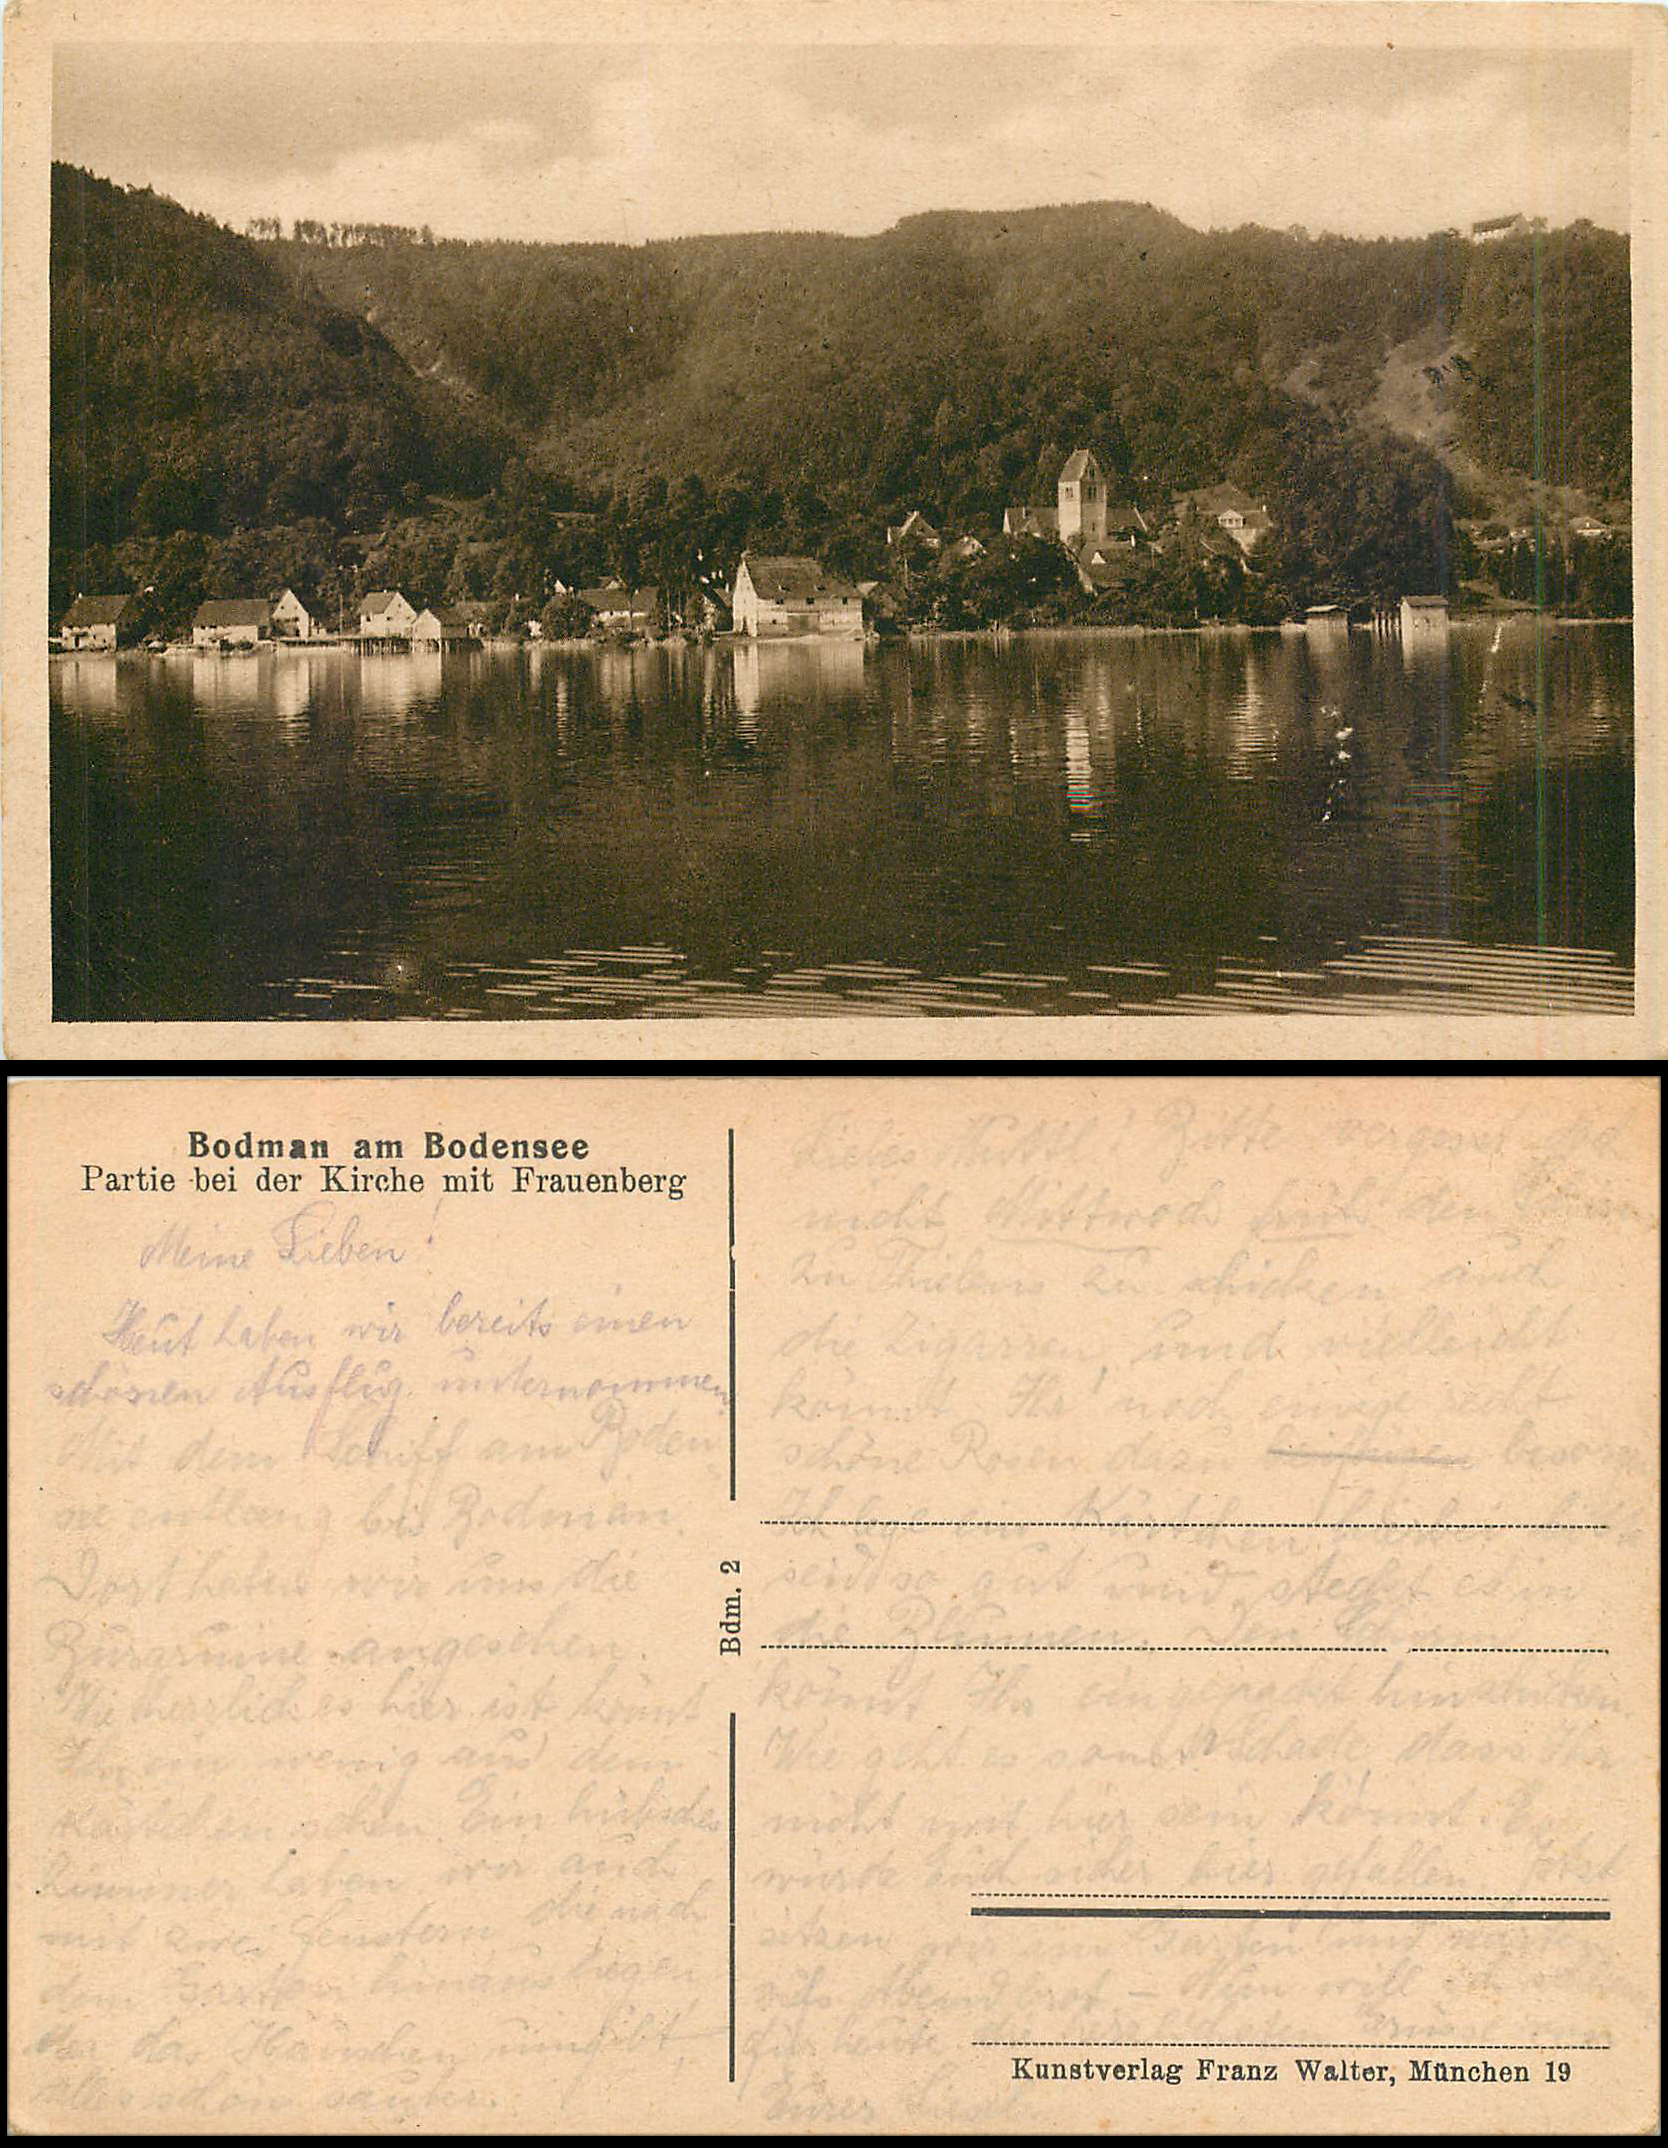 Bodman am Bodensee
Partie bei der Kirche mit Frauenberg
Meine Lieben!
Heut haben wir bereits einen
schönen Ausflug unternommen
Mit dem Schiff am Boden-
see entlang bis Bodman.
Dort haben wir uns die
Burgruine angesehen.
Wie herrlich es hier ist könnt
Ihr ein wenig aus dem
Kärtchen sehen. Ein hübsches
Zimmer haben wir auch
mit zwei Fenstern die nach
dem Garten hinaus liegen
der das Häuschen umgibt,
alles schön sauber.
Bdm. 2
Liebes Bitte vergesst
nicht Mittwoch früh den
zu Thielens zu schicken auch
die Zigarren und vielleicht
könnt Ihr noch einige recht
schöne Rosen dazu beifügen besorgen
Ich lege ein Kärtchen
seid so gut und steckt es in
die Blumen. Den
könnt Ihr eingepackt hinschicken.
Wie geht es sonst? Schade, dass Ihr
nicht mit hier sein könnt. Es
würde Euch sicher hier gefallen. Jetzt
sitzen wir im Garten und warten
aufs Abendbrot. – Nun will ich
für heute die herzlichsten Grüsse von
Eurer
Kunstverlag Franz Walter, München 19